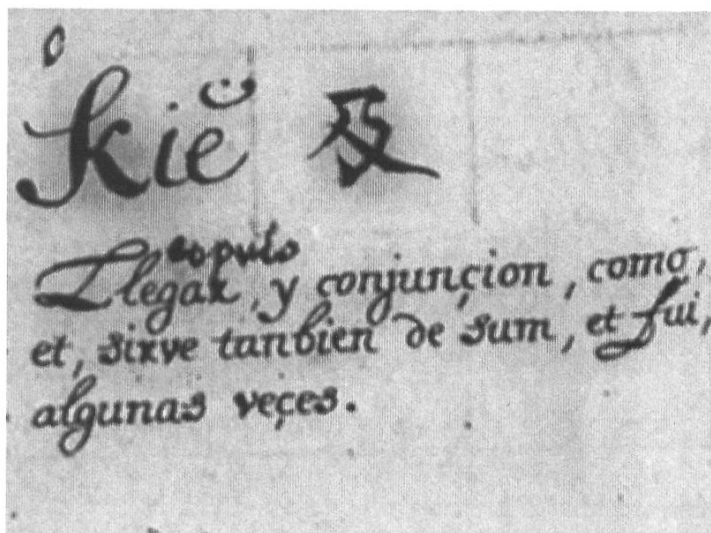 kiĕ 及
copulo
Llegar, y conjunçion, como,
et, sirve tanbien de sum, et fui,
algunas veçes.